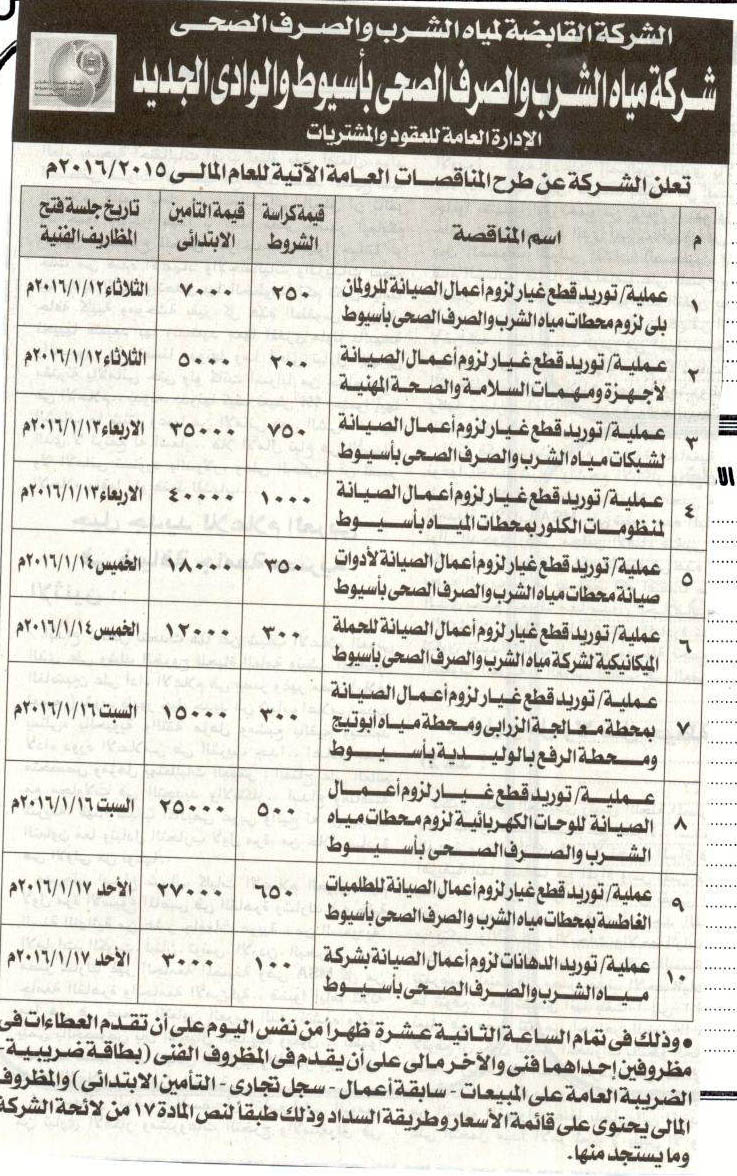 الشركة القابضة لمياه الشرب والصرف الصحى
شركة مياه الشرب والصرف الصحى بأسيوط والوادى الجديد
الإدارة العامة للعقود والمشتريات
تعلن الشركة عن طرح المناقصات العامة الآتية للعام المالى ٢٠١٦/٢٠١٥م
م اسم المناقصة قيمة كراسة الشروط قيمة التأمين الابتدائى تاريخ جلسة فتح المظاريف الفنية
١ عملية/ توريد قطع غيار لزوم أعمال الصيانة للرولمان ٢٥٠ ٧٠٠٠ الثلاثاء ٢٠١٦/١/١٢م
بلى لزوم محطات مياه الشرب والصرف الصحى بأسيوط
٢ عملية/ توريد قطع غيار لزوم أعمال الصيانة ٢٠٠ ٥٠٠٠ الثلاثاء ٢٠١٦/١/١٢م
لأجهزة ومهمات السلامة والصحة المهنية
٣ عملية/ توريد قطع غيار لزوم أعمال الصيانة ٧٥٠ ٣٥٠٠٠ الاربعاء ٢٠١٦/١/١٣م
لشبكات مياه الشرب والصرف الصحى بأسيوط
٤ عملية/ توريد قطع غيار لزوم أعمال الصيانة ١٠٠٠ ٤٠٠٠٠ الاربعاء ٢٠١٦/١/١٣م
لمنظومات الكلور بمحطات المياه بأسيوط
٥ عملية/ توريد قطع غيار لزوم أعمال الصيانة لأدوات ٣٥٠ ١٨٠٠٠ الخميس ٢٠١٦/١/١٤م
صيانة محطات مياه الشرب والصرف الصحى بأسيوط
٦ عملية/ توريد قطع غيار لزوم أعمال الصيانة للحملة ٣٠٠ ١٢٠٠٠ الخميس ٢٠١٦/١/١٤م
الميكانيكية لشركة مياه الشرب والصرف الصحى بأسيوط
٧ عملية/ توريد قطع غيار لزوم أعمال الصيانة ٣٠٠ ١٥٠٠٠ السبت ٢٠١٦/١/١٦م
بمحطة معالجة الزرابى ومحطة مياه أبوتيج
ومحطة الرفع بالوليدية بأسيوط
٨ عملية/ توريد قطع غيار لزوم أعمال ٥٠٠ ٢٥٠٠٠ السبت ٢٠١٦/١/١٦م
الصيانة للوحات الكهربائية لزوم محطات مياه
الشرب والصرف الصحى بأسيوط
٩ عملية/ توريد قطع غيار لزوم أعمال الصيانة للطلمبات ٦٥٠ ٢٧٠٠٠ الأحد ٢٠١٦/١/١٧م
الغاطسة بمحطات مياه الشرب والصرف الصحى بأسيوط
١٠ عملية/ توريد الدهانات لزوم أعمال الصيانة بشركة ١٠٠ ٣٠٠٠ الأحد ٢٠١٦/١/١٧م
مياه الشرب والصرف الصحى بأسيوط
• وذلك فى تمام الساعة الثانية عشرة ظهراً من نفس اليوم على أن تقدم العطاءات فى
مظروفين إحداهما فنى والآخر مالى على أن يقدم فى المظروف الفنى (بطاقة ضريبية -
الضريبة العامة على المبيعات - سابقة أعمال - سجل تجارى - التأمين الابتدائى) والمظروف
المالى يحتوى على قائمة الأسعار وطريقة السداد وذلك طبقاً لنص المادة ١٧ من لائحة الشركة
وما يستجد منها.